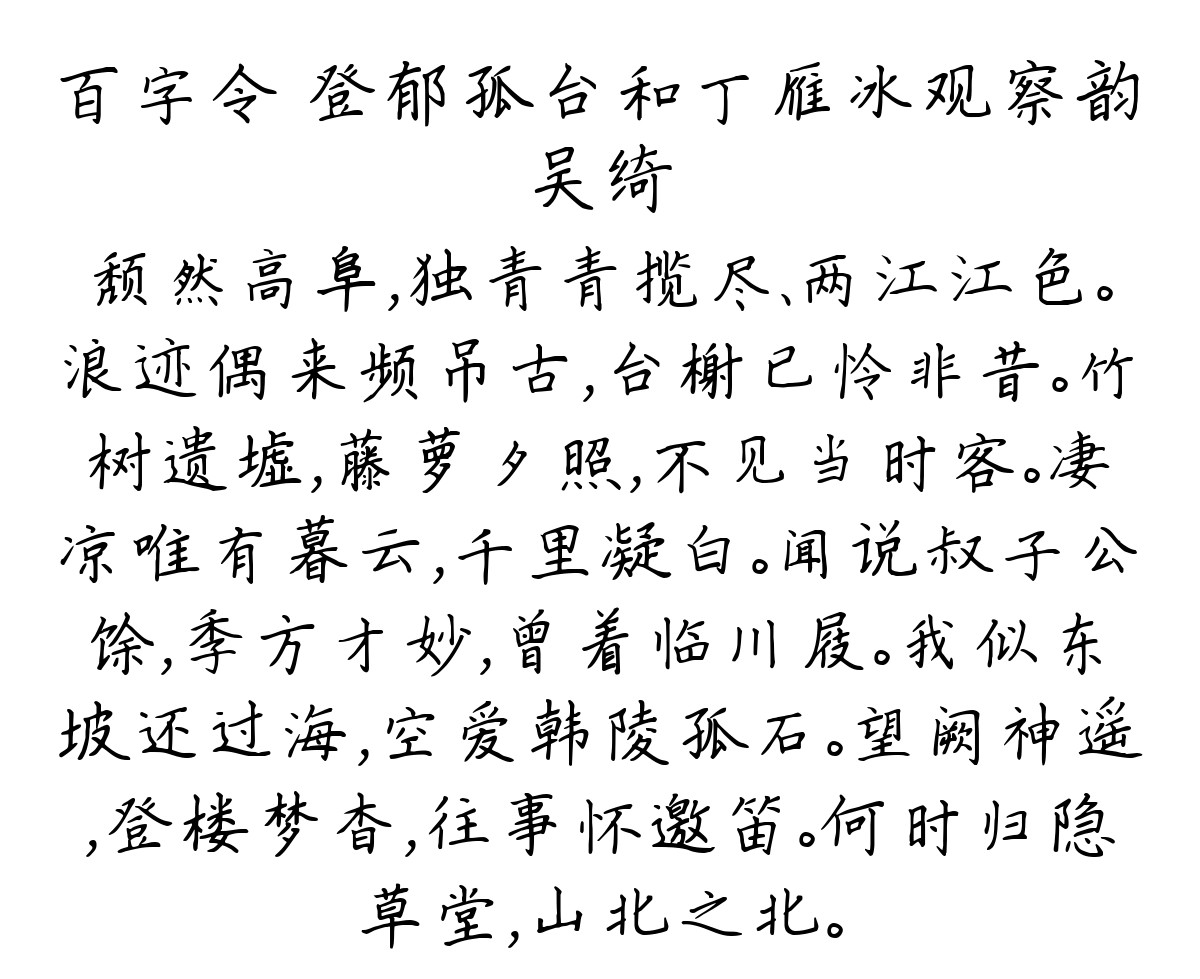 百字令 登郁孤台和丁雁冰观察韵
吴绮
颓然高阜,独青青揽尽、两江江色。
浪迹偶来频吊古,台榭已怜非昔。竹
树遗墟,藤萝夕照,不见当时客。凄
凉唯有暮云,千里凝白。闻说叔子公
馀,季方才妙,曾着临川屐。我似东
坡还过海,空爱韩陵孤石。望阙神遥
,登楼梦杳,往事怀邀笛。何时归隐
草堂,山北之北。